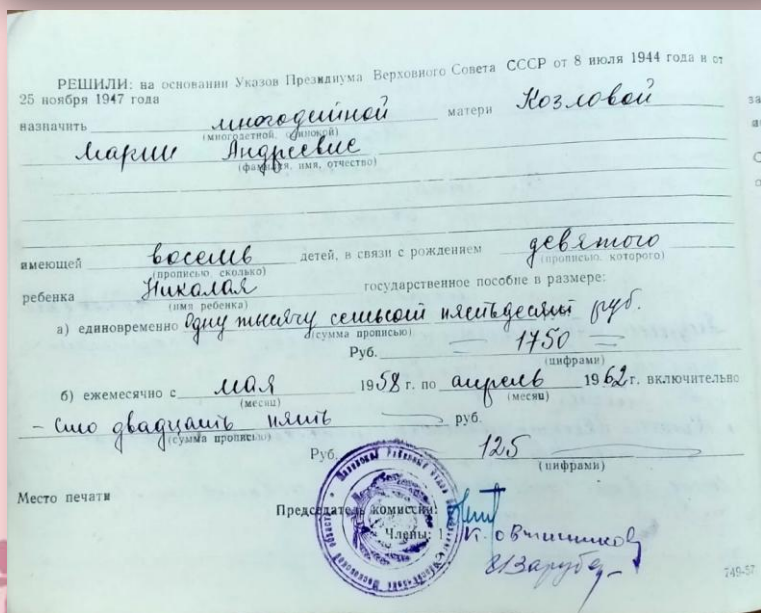 РЕШИЛИ: на основании Указов Президиума Верховного Совета СССР от 8 июля 1944 года и от
25 ноября 1947 года
назначить многодетной матери Козловой
(многодетной, одинокой)
Марии Андреевне
(фамилия, имя, отчество)
имеющей восемь детей, в связи с рождением девятого
(прописью, сколько) (прописью, которого)
ребенка Николая государственное пособие в размере:
(имя ребенка)
а) единовременно Одну тысячу семьсот пятьдесят руб.
(сумма прописью)
Руб. 1750
(цифрами)
б) ежемесячно с мая 1958 г. по апрель 1962 г. включительно
(месяц) (месяц)
- сто двадцать пять руб.
(сумма прописью)
Руб. 125
(цифрами)
Место печати
Председатель комиссии:
Члены: 1.
749-57